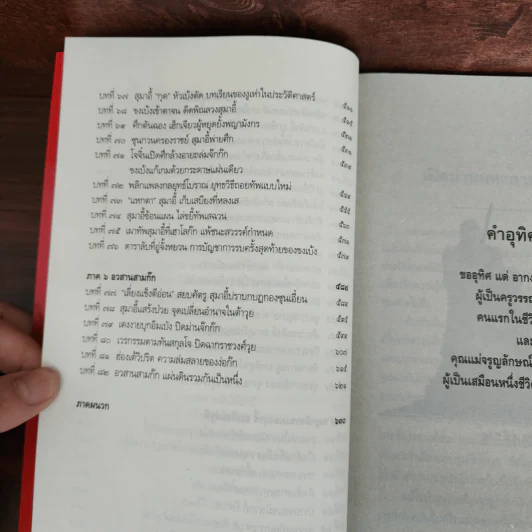 บทที่ ๖๗ สุมาอี้ "ทุด" หัวเบ้งตัด บทเรียนของงูเห่าในประวัติศาสตร์
บทที่ ๖๘ ขงเบ้งเข้าตาจน ติดพิณลวงสุมาอี้
บทที่ ๖๙ ศึกตันฉอง เฮ็กเจียวผู้หยุดยั้งพญามังกร
บทที่ ๗๐ ซุนกวนครองราชย์ สุมาอี้พ่ายศึก
บทที่ ๗๑ โจจิ๋นเปิดศึกล้างอายถล่มจ๊กก๊ก
ขงเบ้งแก้เกมด้วยกระดาษแผ่นเดียว
บทที่ ๗๒ พลิกแพลงกลยุทธ์โบราณ ยุทธวิธีถอยทัพแบบใหม่
บทที่ ๗๓ "เทกตา" สุมาอี้ เก็บเสบียงที่หลงเส
บทที่ ๗๔ สุมาอี้ซ้อนแผน ไล่ขยี้ทัพเสฉวน
บทที่ ๗๕ เผาทัพสุมาอี้ที่เฮาโลก๊ก แพ้ชนะสวรรค์กำหนด
บทที่ ๗๖ ดาราลับที่อู่จั้งหยวน การบัญชาการรบครั้งสุดท้ายของขงเบ้ง
ภาค ๖ อวสานสามก๊ก ๕๘๒
บทที่ ๗๗ "เลี่ยงแข็งตีอ่อน" สยบศัตรู สุมาอี้ปราบกบฏกองซุนเอี๋ยน ๕๘๔
บทที่ ๗๘ สุมาอี้แสร้งป่วย จุดเปลี่ยนอำนาจในต้าวุย
บทที่ ๗๙ เตงงายบุกอิมเป๋ง ปิดม่านจ๊กก๊ก
บทที่ ๘๐ เวรกรรมตามทันสกุลโจ ปิดฉากราชวงศ์วุย ๖๐๓
บทที่ ๘๑ ฮ่องเต้วิปริต ความล่มสลายของง่อก๊ก
บทที่ ๘๒ อวสานสามก๊ก แผ่นดินรวมกันเป็นหนึ่ง ๖๒๑
ภาคผนวก ๖๓๐
คำอุทิศ
ขออุทิศ แด่ อากง
ผู้เป็นครู
คนแรกในชีวิ
และ
คุณแม่จรูญลักษณ์
ผู้เป็นเสมือนหนึ่งชีวิ